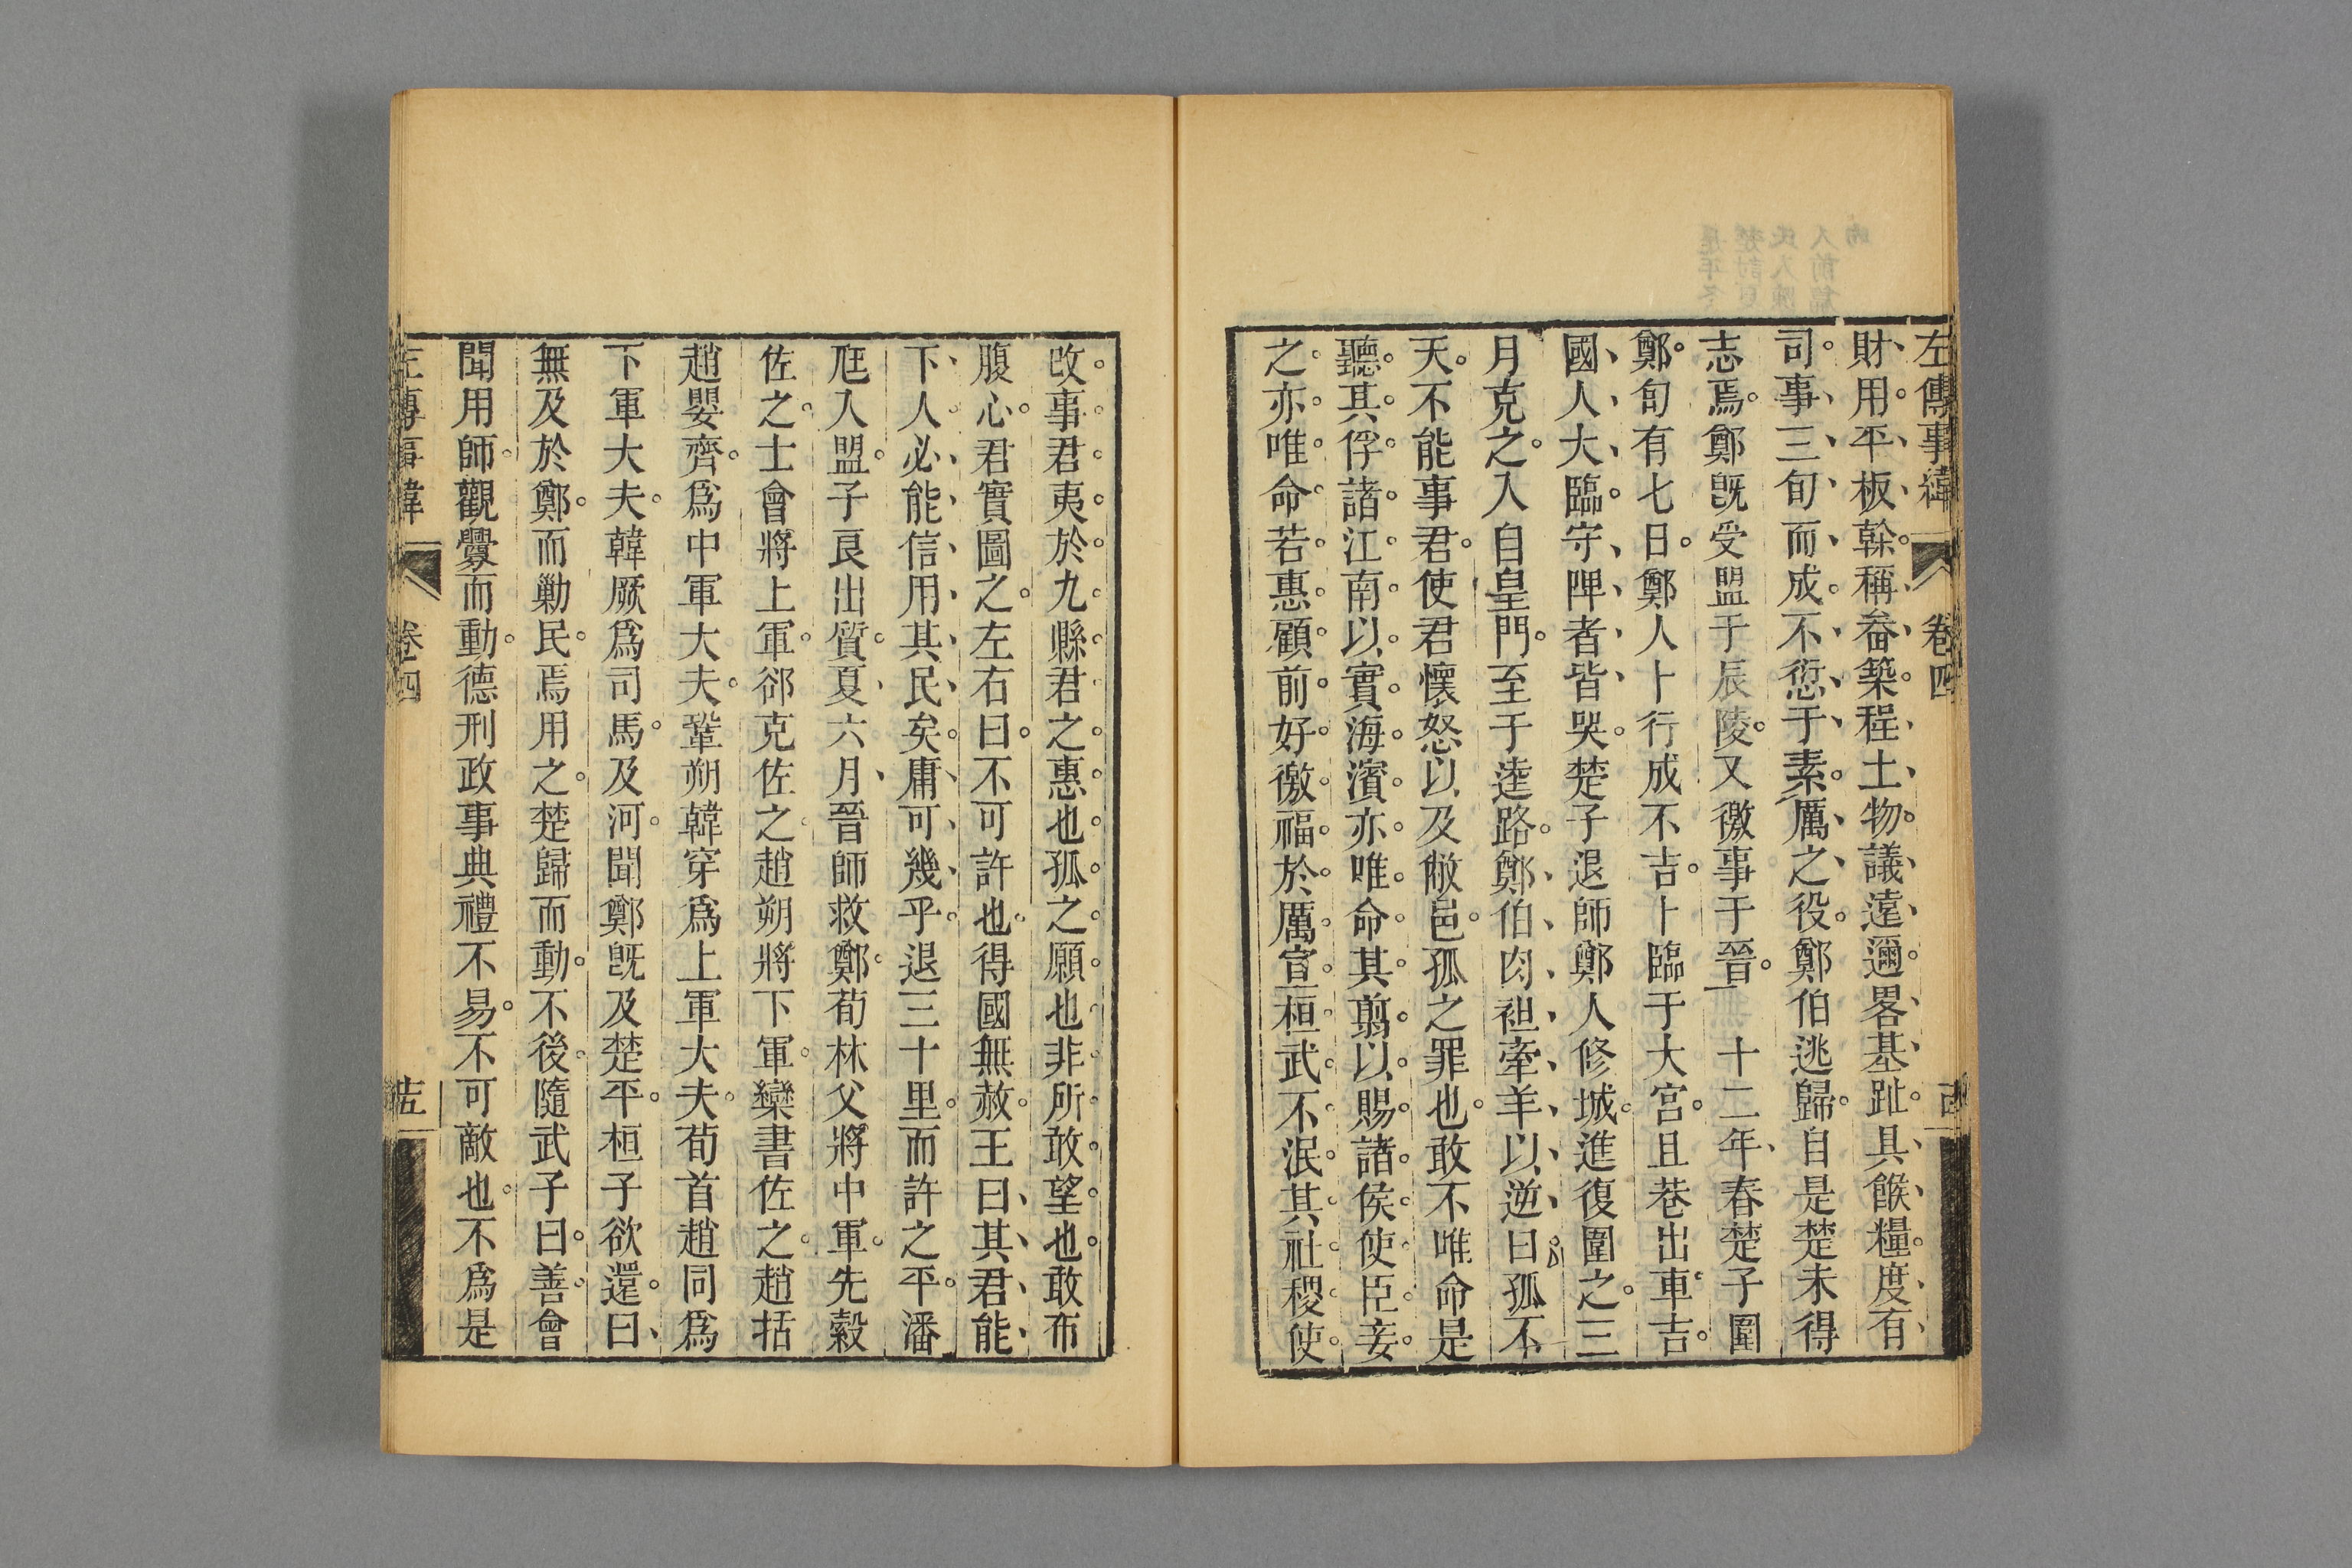 左傳事緯 卷四
財用平板榦稱畚築程土物議遠邇畧基趾具餱糧度有
司事三旬而成不愆于素厲之役鄭伯逃歸自是楚未得
志焉鄭旣受盟于辰陵又徼事于晉 十二年春楚子圍
鄭旬有七日鄭人卜行成不吉卜臨于大宮且巷出車吉
國人大臨守陴者皆哭楚子退師鄭人修城進復圍之三
月克之入自皇門至于逵路鄭伯肉袒牽羊以逆曰孤不
天不能事君使君懷怒以及敝邑孤之罪也敢不唯命是
聽其俘諸江南以實海濱亦唯命其翦以賜諸侯使臣妾
之亦唯命若惠顧前好徼福於厲宣桓武不泯其社稷使
改事君夷於九縣君之惠也孤之願也非所敢望也敢布
腹心君實圖之左右曰不可許也得國無赦王曰其君能
下人必能信用其民矣庸可幾乎退三十里而許之平潘
尫入盟子良出質夏六月晉師救鄭荀林父將中軍先縠
佐之士會將上軍郤克佐之趙朔將下軍欒書佐之趙括
趙嬰齊爲中軍大夫鞏朔韓穿爲上軍大夫荀首趙同爲
下軍大夫韓厥爲司馬及河聞鄭旣及楚平桓子欲還曰
無及於鄭而勦民焉用之楚歸而動不後隨武子曰善會
聞用師觀釁而動德刑政事典禮不易不可敵也不爲是
左傳事緯 卷四